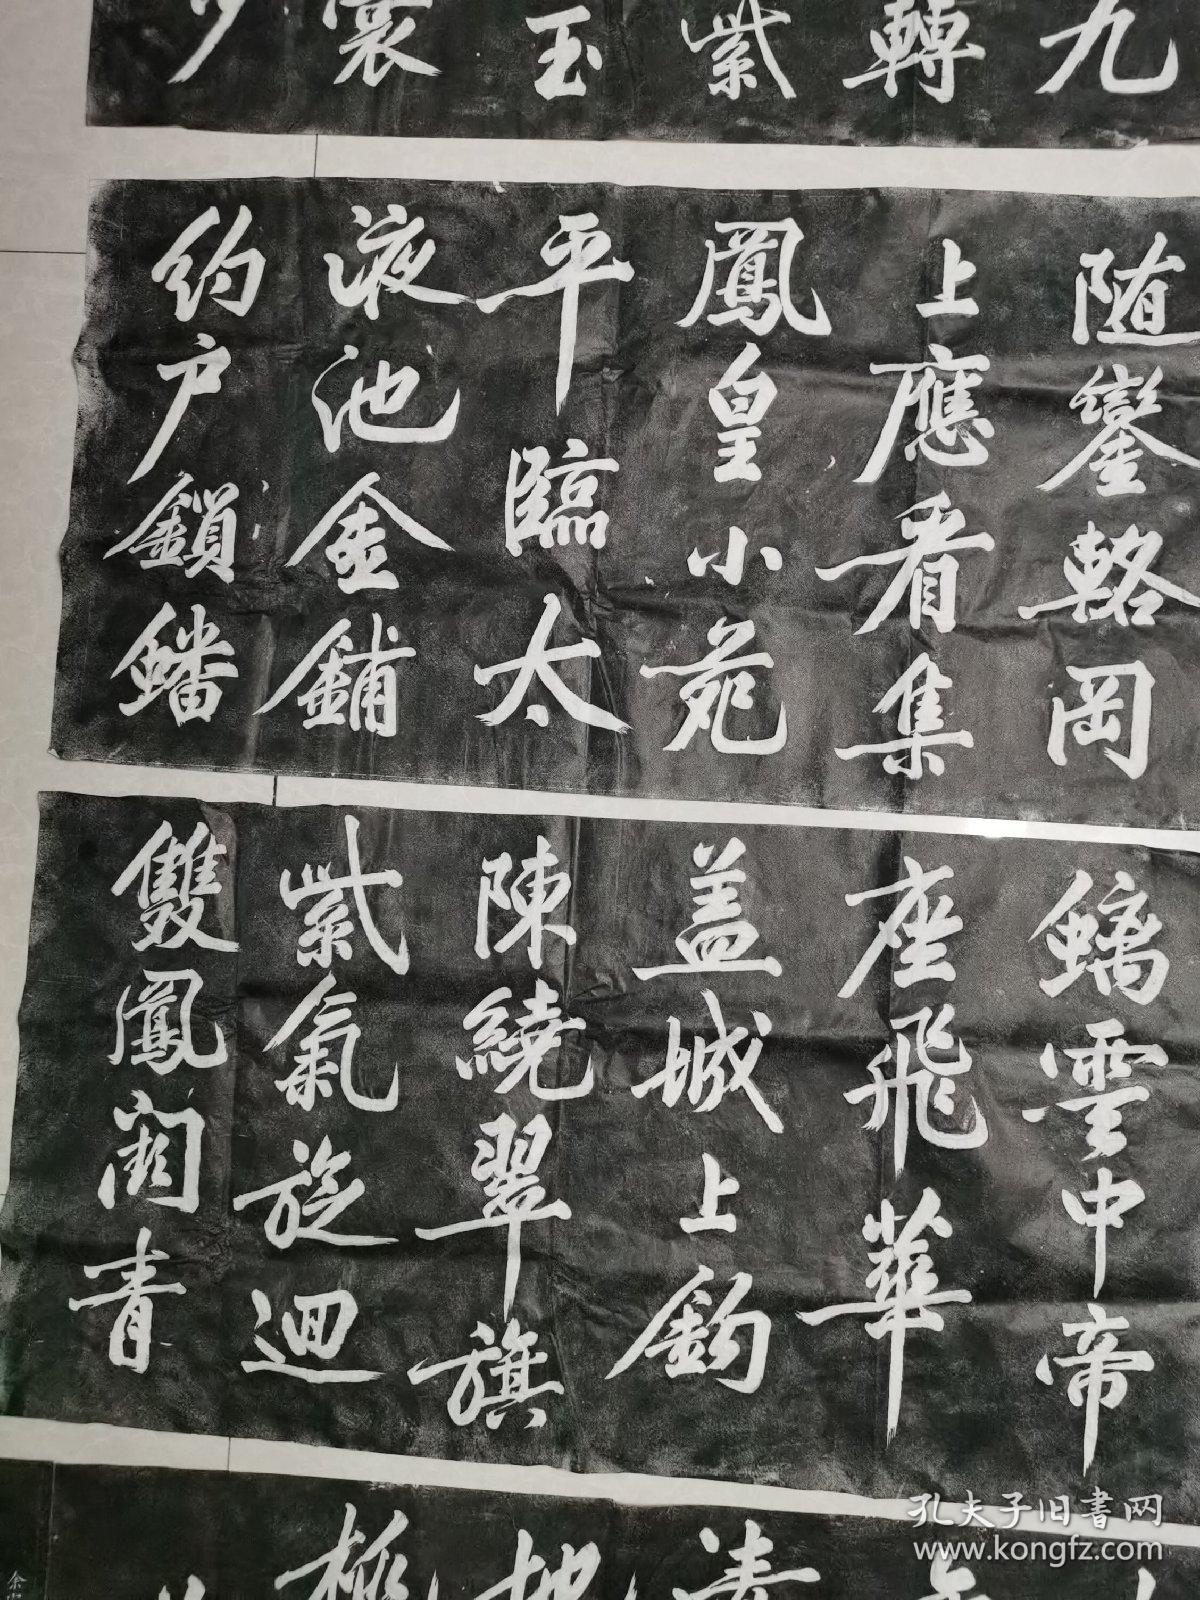 九
轉
紫
玉
裳
随鑾輅岡
上應看集
鳳皇小苑
平臨太
液池金鋪
約户鎖蟠
螭雲中帝
座飛華
盖城上鈎
陳繞翠旗
紫氣旋迴
雙鳳闕青
極
地
清
孔夫子旧书网
www.kongfz.com